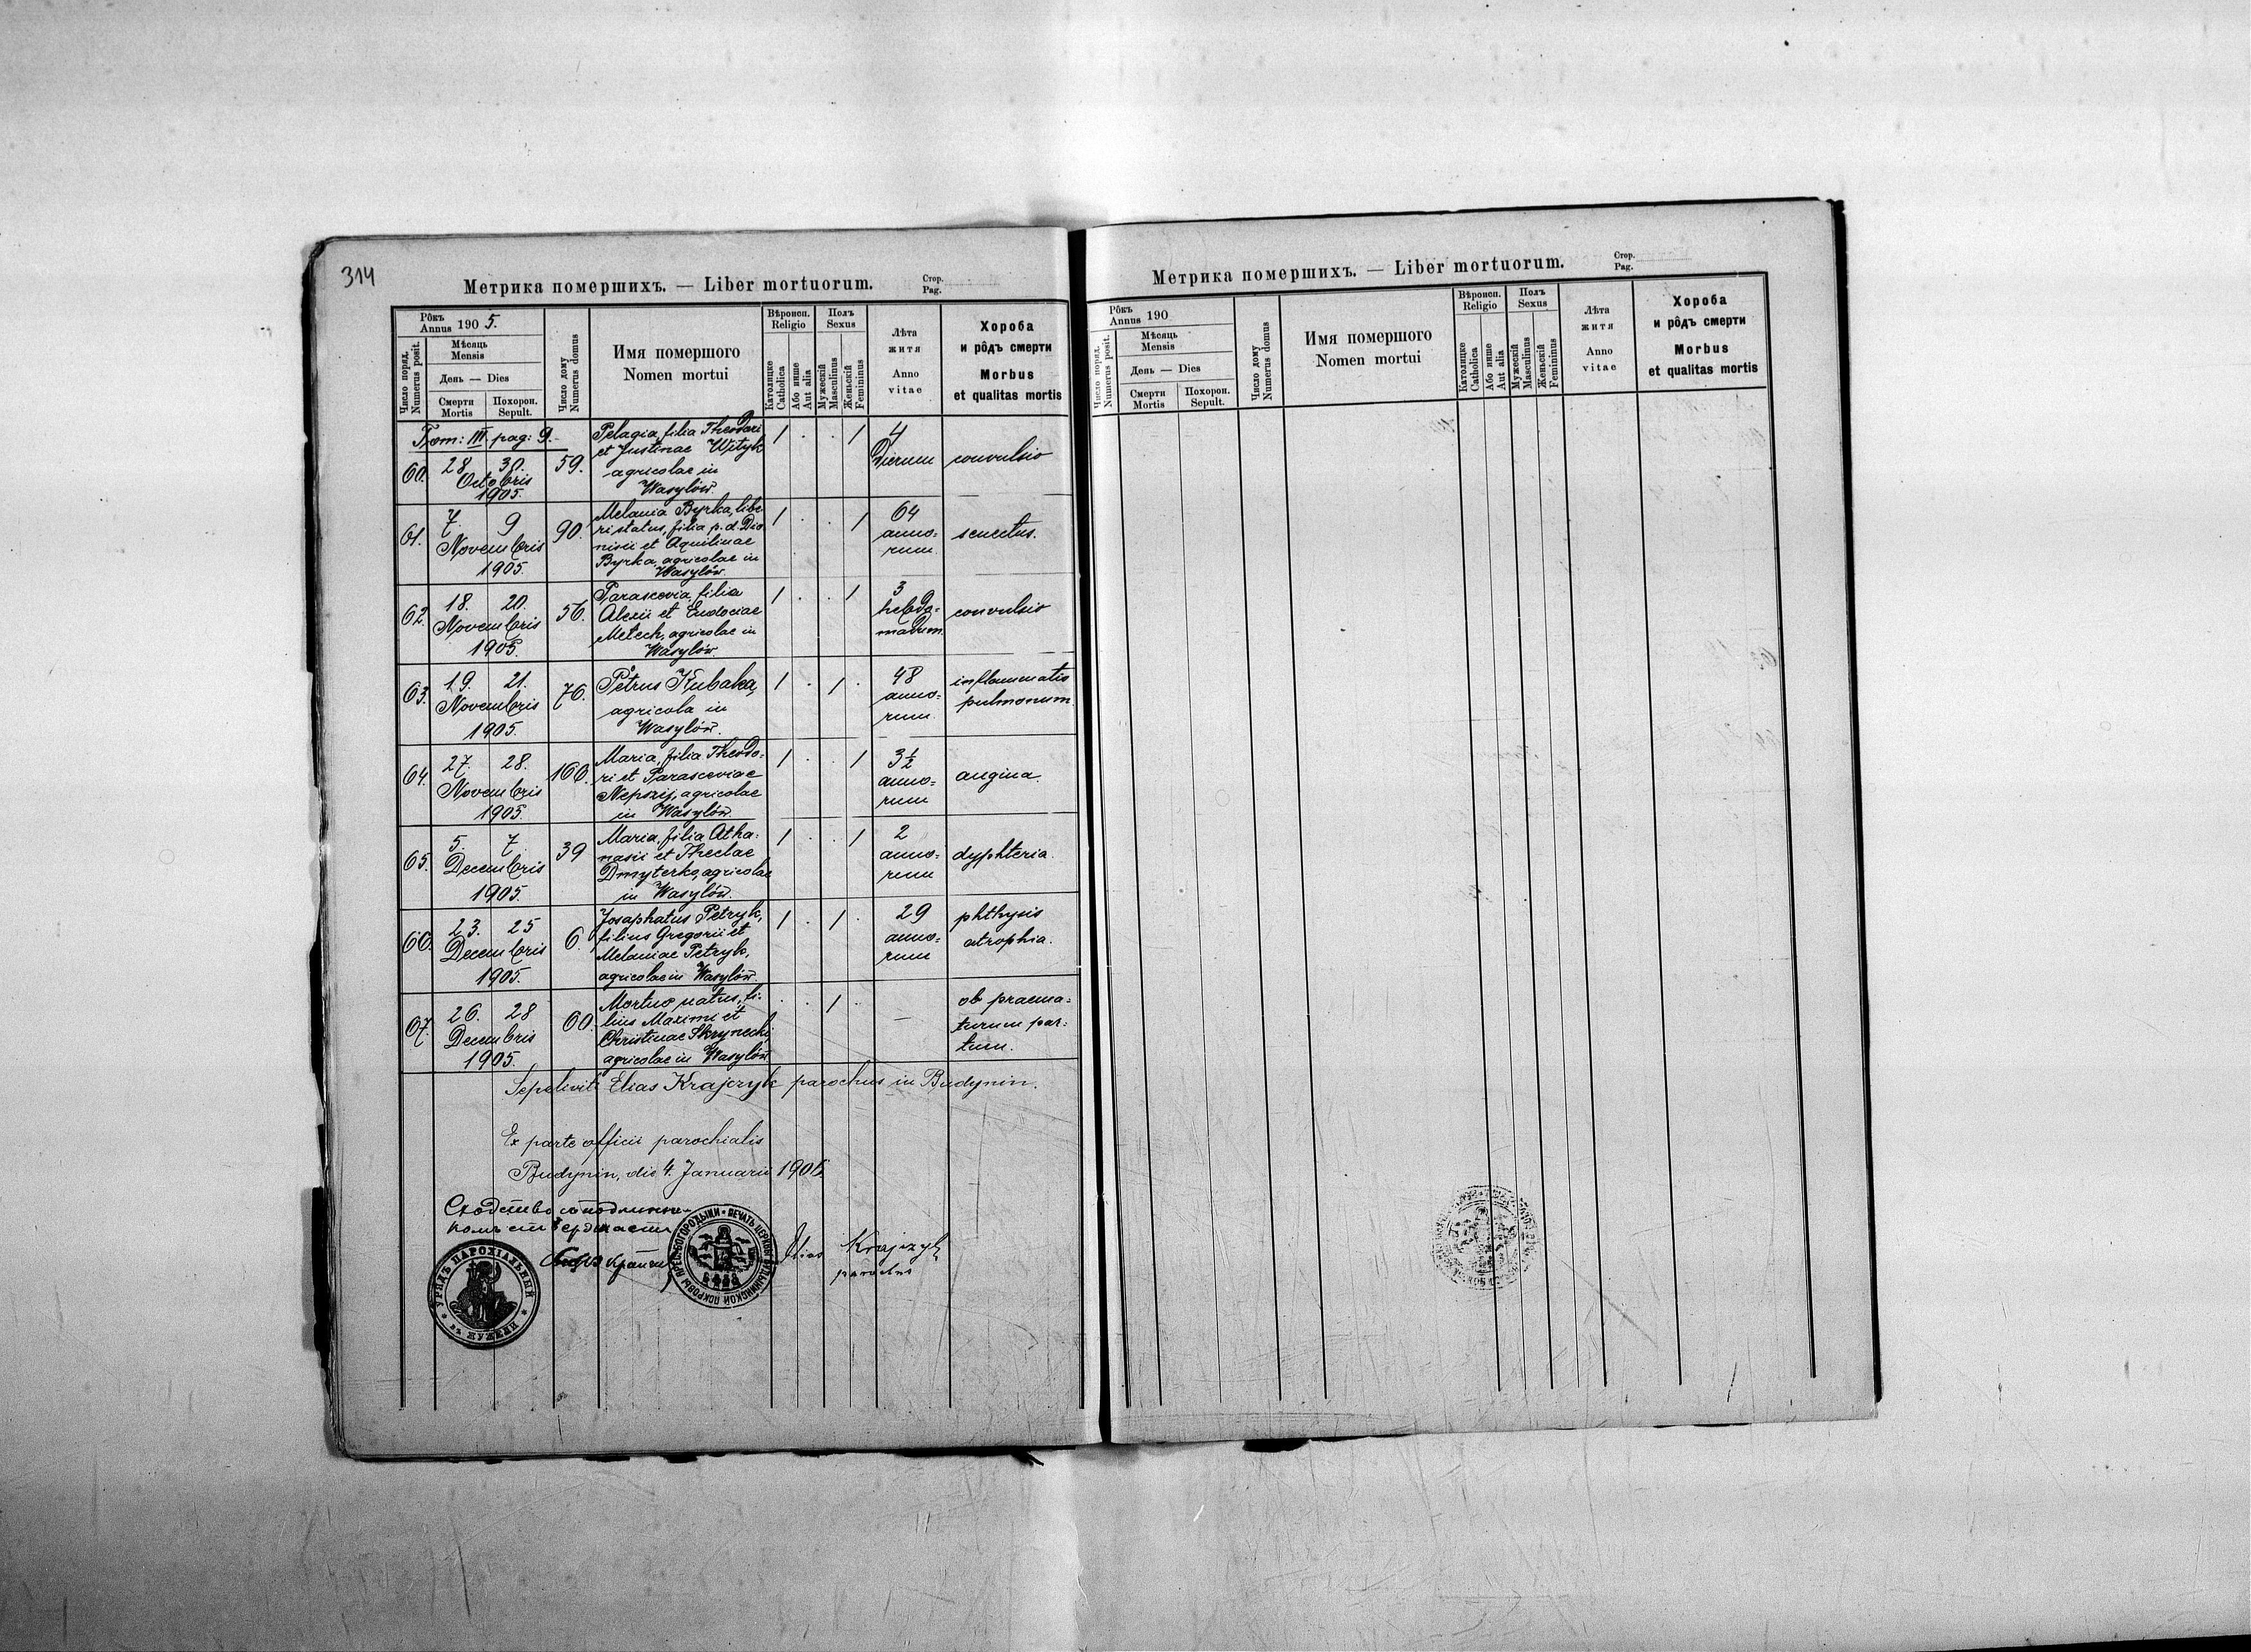 314
Метрика помершихъ. — Liber mortuorum.
Стор.
Pag.
Рôкъ
Annus 1905.
Мѣсяць
Mensis
День — Dies
Смерти
Mortis
Похорон.
Sepult.
Число поряд.
Numerus posit.
Число дому
Numerus domus
Имя помершого
Nomen mortui
Вѣроисп.
Religio
Католицке
Catholica
Або инше
Aut alia
Полъ
Sexus
Мужескій
Masculinus
Женьскій
Femininus
Лѣта
житя
Anno
vitae
Хороба
и рôдъ смерти
Morbus
et qualitas mortis
Tom: III. pag: 9.
60. 28 30. 59.
Octobris
1905.
Pelagia, filia Theodori
et Justinae Wityk
agricolae in
Wasylów.
1 . . 1
4
Dierum
convulsio
61. 7. 9 90.
Novembris
1905.
Melania Byrka, libe
ri status, filia p. d. Dio
nisii et Aquilinae
Byrka, agricolae in
Wasylów.
1 . . 1
64
anno=
rum.
senectus.
62. 18. 20. 56.
Novembris
1905.
Parascevia, filia
Alexii et Eudociae
Metech, agricolae in
Wasylów.
1 . . 1
3
hebdo=
madum.
convulsio
63. 19. 21. 76.
Novembris
1905.
Petrus Kubaka,
agricola in
Wasylów.
1 . 1 .
48
anno=
rum.
inflammatio
pulmonum.
64. 27. 28. 160.
Novembris
1905.
Maria, filia Theodo=
ri et Parasceviae
agricolae
in Wasylów.
1 . . 1
3½
anno=
rum
angina.
65. 5. 7. 39
Decembris
1905.
Maria, filia Atha=
nasii et Theclae
Dmyterko, agricolae
in Wasylów.
1 . . 1
2
anno=
rum
dyphteria.
66. 23. 25 6.
Decembris
1905.
Josaphatus Petryk,
filius Gregorii et
Melaniae Petryk,
agricolae in Wasylów.
1 . 1 .
29
anno=
rum
phthysis
atrophia.
67. 26. 28 60.
Decembris
1905.
Mortuo natus, fi=
lius Maximi et
Christinae Skrynecki
agricolae in Wasylów
. . 1 .
—
ob praema=
turum par=
tum.
Sepelivit Elias Krajczyk parochus in Budynin.
Ex parte officii parochialis
Budynin, die 4. Januarii 1906.
Elias Krajczyk
parochus
УРЯДЪ ПАРОХІАЛЬНЫЙ
ПЕЧАТЬ ЦЕРКВИ БУДЫНИНСКОЙ ПОКРОВЫ ПРЕСВ. БОГОРОДЫЦИ
Метрика помершихъ. — Liber mortuorum.
Стор.
Pag.
Рôкъ
Annus 190
Мѣсяць
Mensis
День — Dies
Смерти
Mortis
Похорон.
Sepult.
Число поряд.
Numerus posit.
Число дому
Numerus domus
Имя помершого
Nomen mortui
Вѣроисп.
Religio
Католицке
Catholica
Або инше
Aut alia
Полъ
Sexus
Мужескій
Masculinus
Женьскій
Femininus
Лѣта
житя
Anno
vitae
Хороба
и рôдъ смерти
Morbus
et qualitas mortis